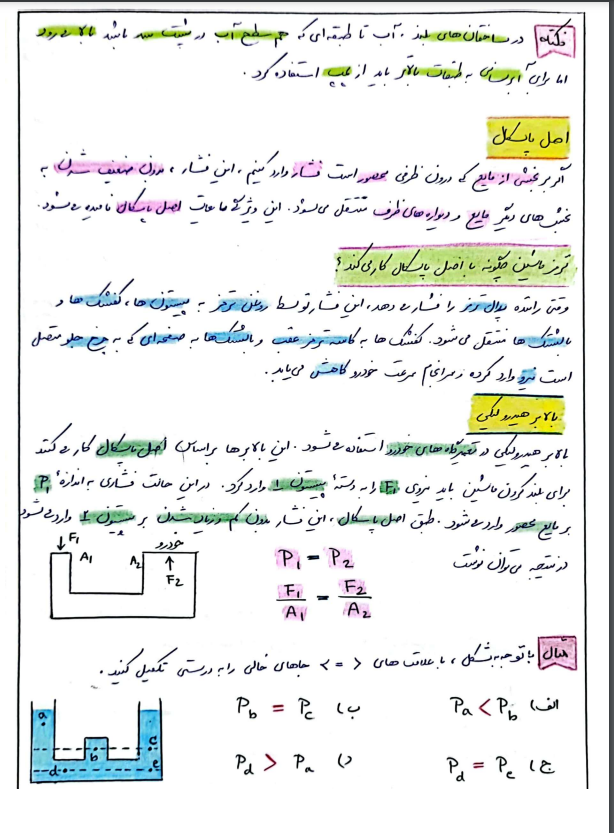 نکته در ساختمان‌های بلند، آب تا طبقه‌ای که هم سطح آب در باشد بالا می‌رود
اما برای آبرسانی به طبقات بالاتر باید از پمپ استفاده کرد.
اصل پاسکال
اگر بر بخشی از مایع که درون ظرفی محصور است فشار وارد کنیم، این فشار، بدون ضعیف شدن به
بخش‌های دیگر مایع و دیواره‌های ظرف منتقل می‌شود. این ویژگی مایعات اصل پاسکال نامیده می‌شود.
ترمز ماشین چگونه با اصل پاسکال کار می‌کند؟
وقتی راننده پدال ترمز را فشار می‌دهد، این فشار توسط روغن ترمز به پیستون‌ها، کفشک‌ها و
بالشتک‌ها منتقل می‌شود. کفشک‌ها به کاسه ترمز عقب و بالشتک‌ها به صفحه‌ای که به چرخ جلو متصل
است نیرو وارد کرده و سرانجام سرعت خودرو کاهش می‌یابد.
بالابر هیدرولیکی
بالابر هیدرولیکی در تعمیرگاه‌های خودرو استفاده می‌شود. این بالابرها براساس اصل پاسکال کار می‌کنند
برای بلند کردن ماشین باید نیروی F₁ را به دستهٔ پیستون ۱ وارد کرد. در این حالت فشاری به اندازهٔ P₁
بر مایع محصور وارد می‌شود. طبق اصل پاسکال، این فشار بدون کم و زیاد شدن بر پیستون ۲ وارد می‌شود
در نتیجه می‌توان نوشت
P₁ = P₂
F₁/A₁ = F₂/A₂
F₁ A₁ A₂ خودرو F₂
مثال با توجه به شکل، با علامت‌های < = > جاهای خالی را به درستی تکمیل کنید.
الف) Pa < Pb
ب) Pb = Pc
ج) Pd = Pe
د) Pd > Pa
a b c d e